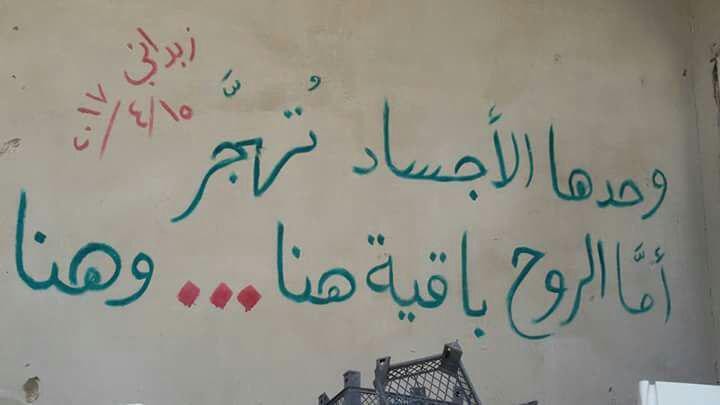 زبداني
٢٠١٧/٤/١٥
وحدها الأجساد تُهجَّر
أمَّا الروح باقية هنا ... وهنا